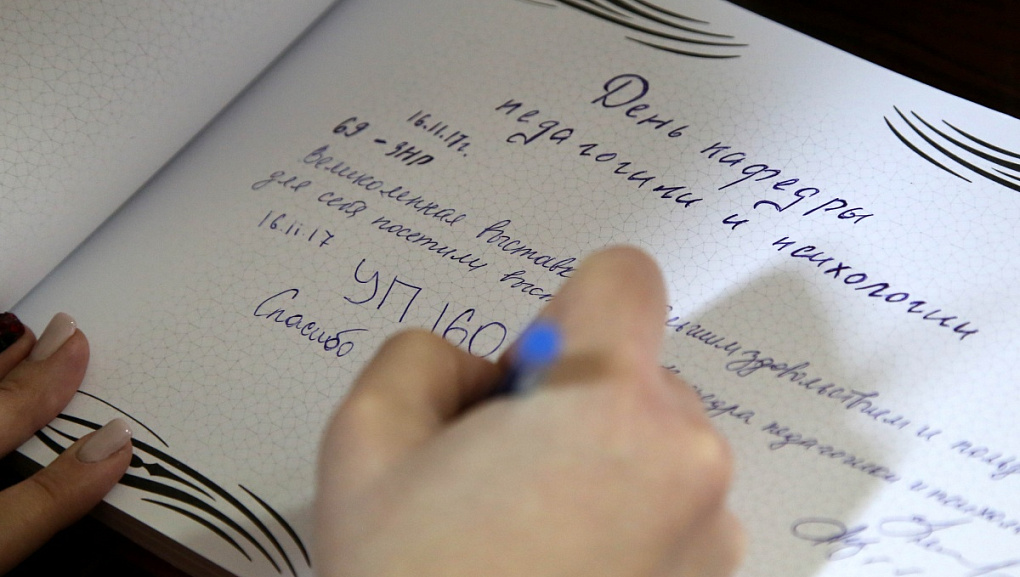 День кафедры
педагогики и психологии
16.11.17г.
69 - ЗНР
Великолепная выставка
большим удовольствием и
для себя посетили
кафедра педагогики и
16.11.17
УП 160
Спасибо